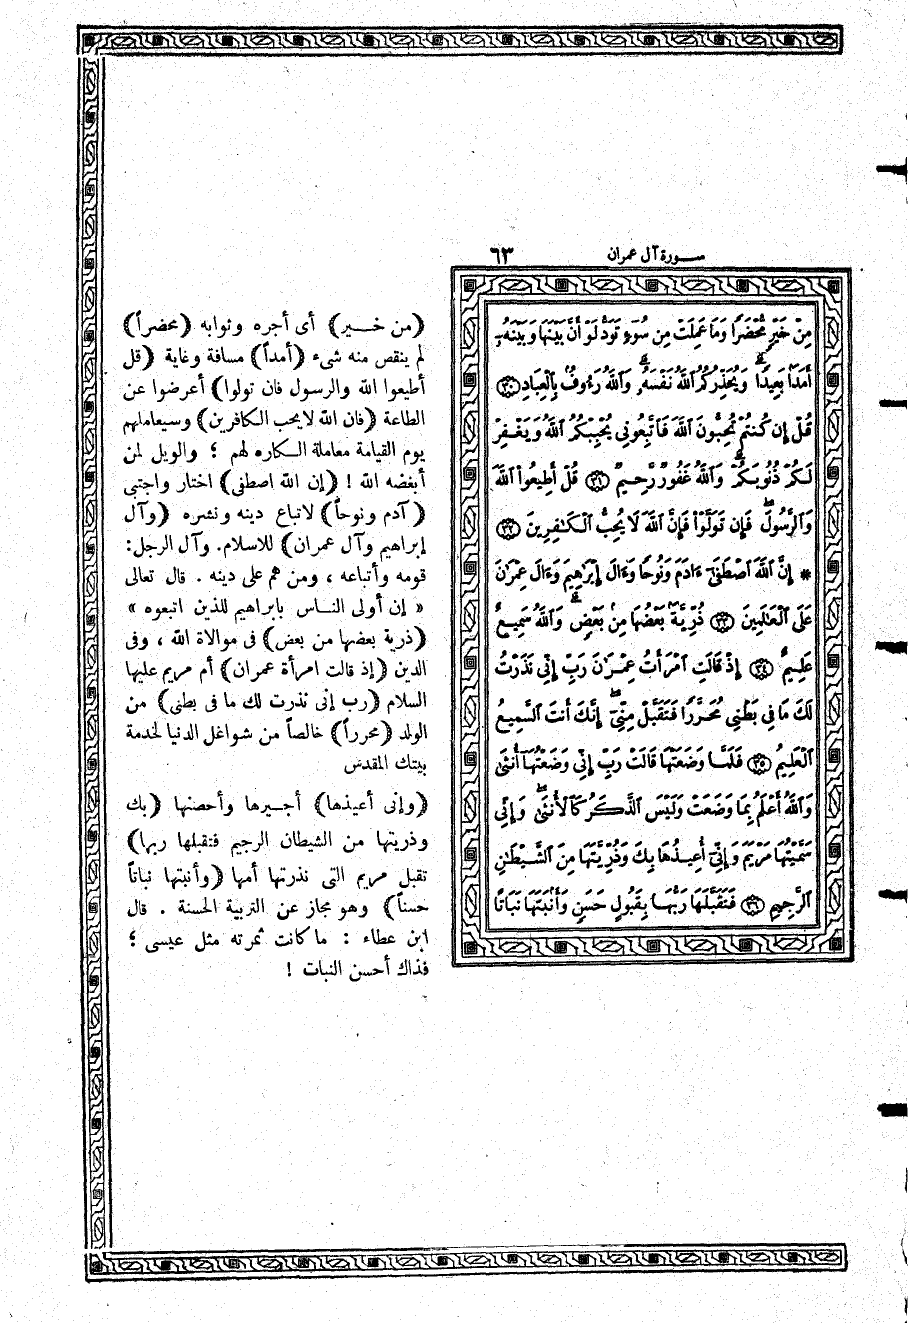 سورة آل عمران ٦٣
مِنْ خَيْرٍ مُّحْضَرًا وَمَا عَمِلَتْ مِن سُوٓءٍ تَوَدُّ لَوْ أَنَّ بَيْنَهَا وَبَيْنَهُۥٓ
أَمَدَۢا بَعِيدًا ۗ وَيُحَذِّرُكُمُ ٱللَّهُ نَفْسَهُۥ ۗ وَٱللَّهُ رَءُوفُۢ بِٱلْعِبَادِ ﴿٣٠﴾
قُلْ إِن كُنتُمْ تُحِبُّونَ ٱللَّهَ فَٱتَّبِعُونِى يُحْبِبْكُمُ ٱللَّهُ وَيَغْفِرْ
لَكُمْ ذُنُوبَكُمْ ۗ وَٱللَّهُ غَفُورٌ رَّحِيمٌ ﴿٣١﴾ قُلْ أَطِيعُوا۟ ٱللَّهَ
وَٱلرَّسُولَ ۖ فَإِن تَوَلَّوْا۟ فَإِنَّ ٱللَّهَ لَا يُحِبُّ ٱلْكَٰفِرِينَ ﴿٣٢﴾
* إِنَّ ٱللَّهَ ٱصْطَفَىٰٓ ءَادَمَ وَنُوحًا وَءَالَ إِبْرَٰهِيمَ وَءَالَ عِمْرَٰنَ
عَلَى ٱلْعَٰلَمِينَ ﴿٣٣﴾ ذُرِّيَّةَۢ بَعْضُهَا مِنۢ بَعْضٍ ۗ وَٱللَّهُ سَمِيعٌ
عَلِيمٌ ﴿٣٤﴾ إِذْ قَالَتِ ٱمْرَأَتُ عِمْرَٰنَ رَبِّ إِنِّى نَذَرْتُ
لَكَ مَا فِى بَطْنِى مُحَرَّرًا فَتَقَبَّلْ مِنِّىٓ ۖ إِنَّكَ أَنتَ ٱلسَّمِيعُ
ٱلْعَلِيمُ ﴿٣٥﴾ فَلَمَّا وَضَعَتْهَا قَالَتْ رَبِّ إِنِّى وَضَعْتُهَآ أُنثَىٰ
وَٱللَّهُ أَعْلَمُ بِمَا وَضَعَتْ وَلَيْسَ ٱلذَّكَرُ كَٱلْأُنثَىٰ ۖ وَإِنِّى
سَمَّيْتُهَا مَرْيَمَ وَإِنِّىٓ أُعِيذُهَا بِكَ وَذُرِّيَّتَهَا مِنَ ٱلشَّيْطَٰنِ
ٱلرَّجِيمِ ﴿٣٦﴾ فَتَقَبَّلَهَا رَبُّهَا بِقَبُولٍ حَسَنٍ وَأَنۢبَتَهَا نَبَاتًا
(من خـــير) أى أجره وثوابه (محضراً)
لم ينقص منه شىء (أمداً) مسافة وغاية (قل
أطيعوا الله والرسول فان تولوا) أعرضوا عن
الطاعة (فان الله لا يحب الكافرين) وسيعاملهم
يوم القيامة معاملة الـكاره لهم ؛ والويل لمن
أبغضه الله ! (إن الله اصطفى) اختار واجتبى
(آدم ونوحاً) لاتباع دينه ونشره (وآل
إبراهيم وآل عمران) للاسلام. وآل الرجل:
قومه وأتباعه ، ومن هم على دينه . قال تعالى
« إن أولى النـاس بابراهيم للذين اتبعوه »
(ذرية بعضها من بعض) فى موالاة الله ، وفى
الدين (إذ قالت امرأة عمران) أم مريم عليها
السلام (رب إنى نذرت لك ما فى بطنى) من
الولد (محرراً) خالصاً من شواغل الدنيا لخدمة
بيتك المقدس
(وإنى أعيذها) أجـيرها وأحصنها (بك
وذريتها من الشيطان الرجيم فتقبلها ربها)
تقبل مريم التى نذرتها أمها (وأنبتها نباتاً
حسناً) وهو مجاز عن التربية الحسنة . قال
ابن عطاء : ما كانت ثمرته مثل عيسى ؛
فذاك أحسن النبات !